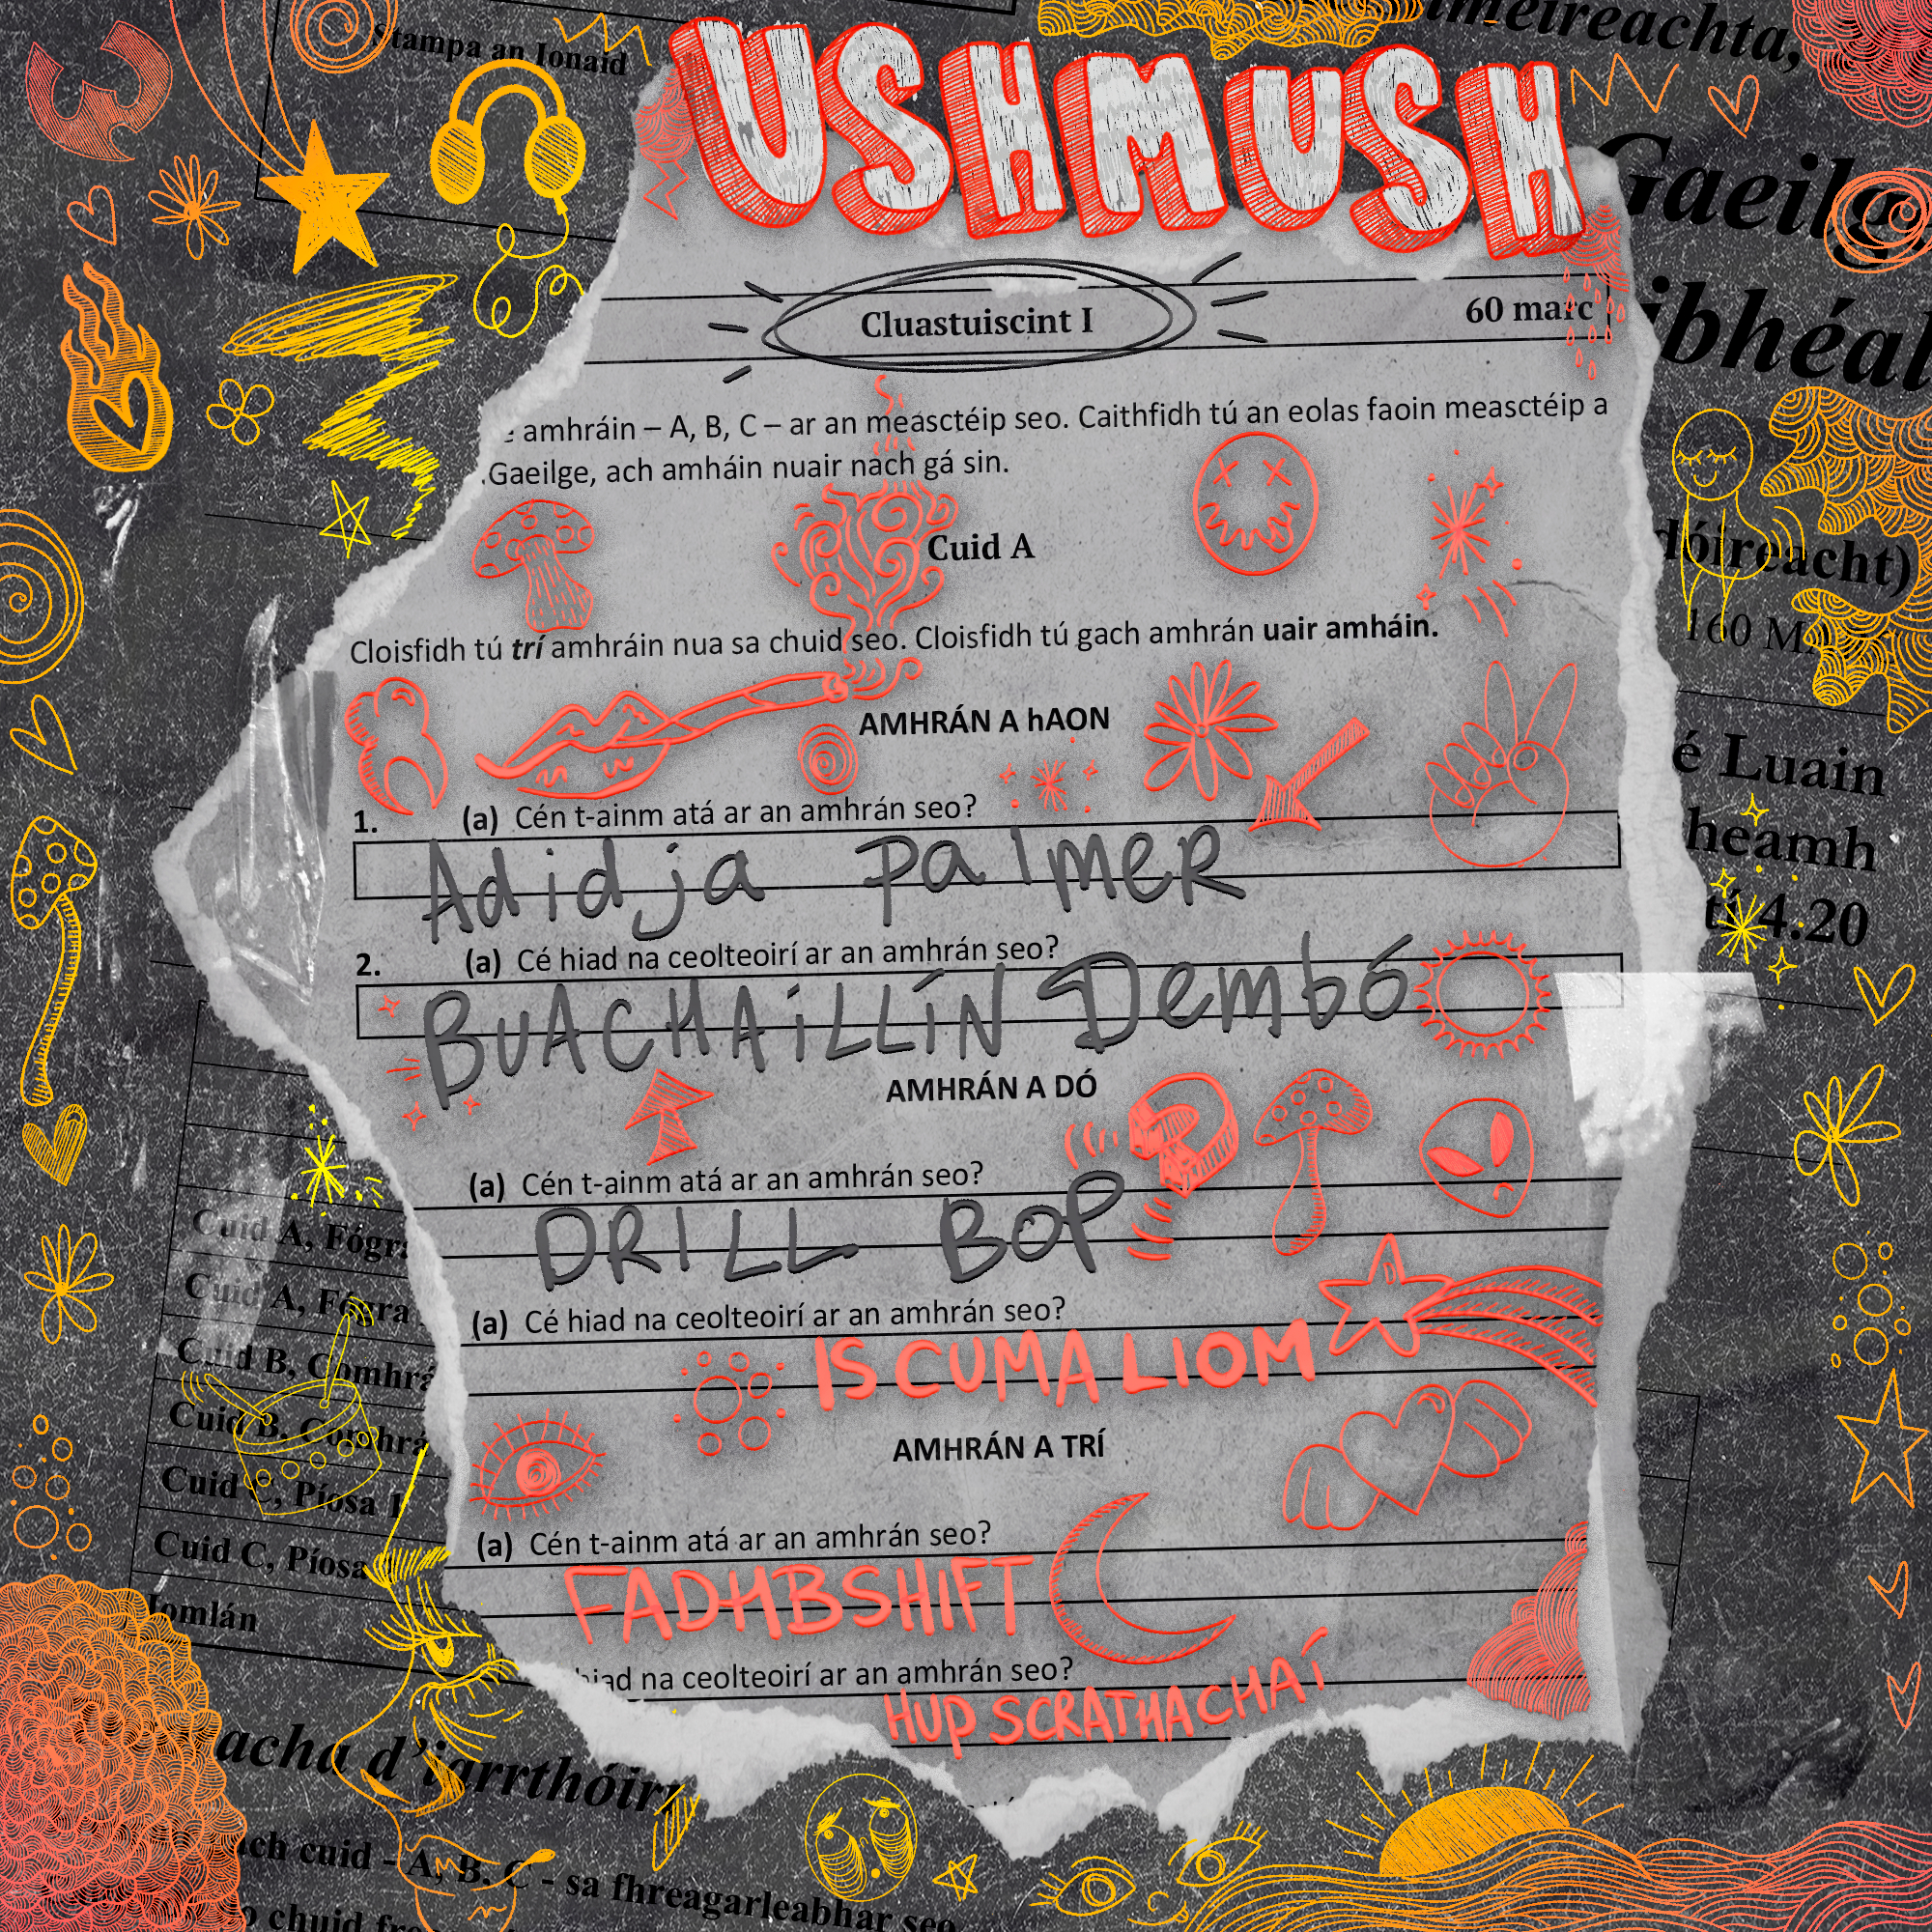 Stampa an Ionaid
USHMUSH
Cluastuiscint I
60 marc
amhráin – A, B, C – ar an measctéip seo. Caithfidh tú an eolas faoin measctéip a
Gaeilge, ach amháin nuair nach gá sin.
Cuid A
Cloisfidh tú trí amhráin nua sa chuid seo. Cloisfidh tú gach amhrán uair amháin.
AMHRÁN A hAON
1. (a) Cén t-ainm atá ar an amhrán seo?
Adidja Palmer
2. (a) Cé hiad na ceolteoirí ar an amhrán seo?
BUACHAiLLíN Dembó
AMHRÁN A DÓ
(a) Cén t-ainm atá ar an amhrán seo?
DRILL BOP
(a) Cé hiad na ceolteoirí ar an amhrán seo?
IS CUMA LIOM
AMHRÁN A TRÍ
(a) Cén t-ainm atá ar an amhrán seo?
FADHBSHIFT
hiad na ceolteoirí ar an amhrán seo?
HUP SCRATHACHAÍ
Gaeilg
ibhéal
dóireacht)
160
é Luain
heamh
4.20
Cuid A, Fógra
Cuid A, Fógra
Cuid B, Comhrá
Cuid B, Comhrá
Cuid C, Píosa 1
Cuid C, Píosa
Iomlán
acha d'iarrthóirí
ach cuid - A, B, C - sa fhreagarleabhar seo
chuid